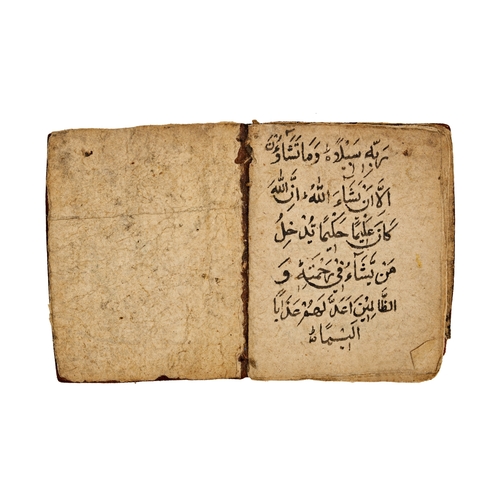 رَبِّهِ سَبِيْلًا وَمَا تَشَاؤُنَ
اِلَّا اَنْ يَشَاءَ اللهُ اِنَّ اللهَ
كَانَ عَلِيْمًا حَكِيْمًا يُدْخِلُ
مَنْ يَشَاءُ فِي رَحْمَتِهِ وَ
الظَّالِمِيْنَ اَعَدَّ لَهُمْ عَذَابًا